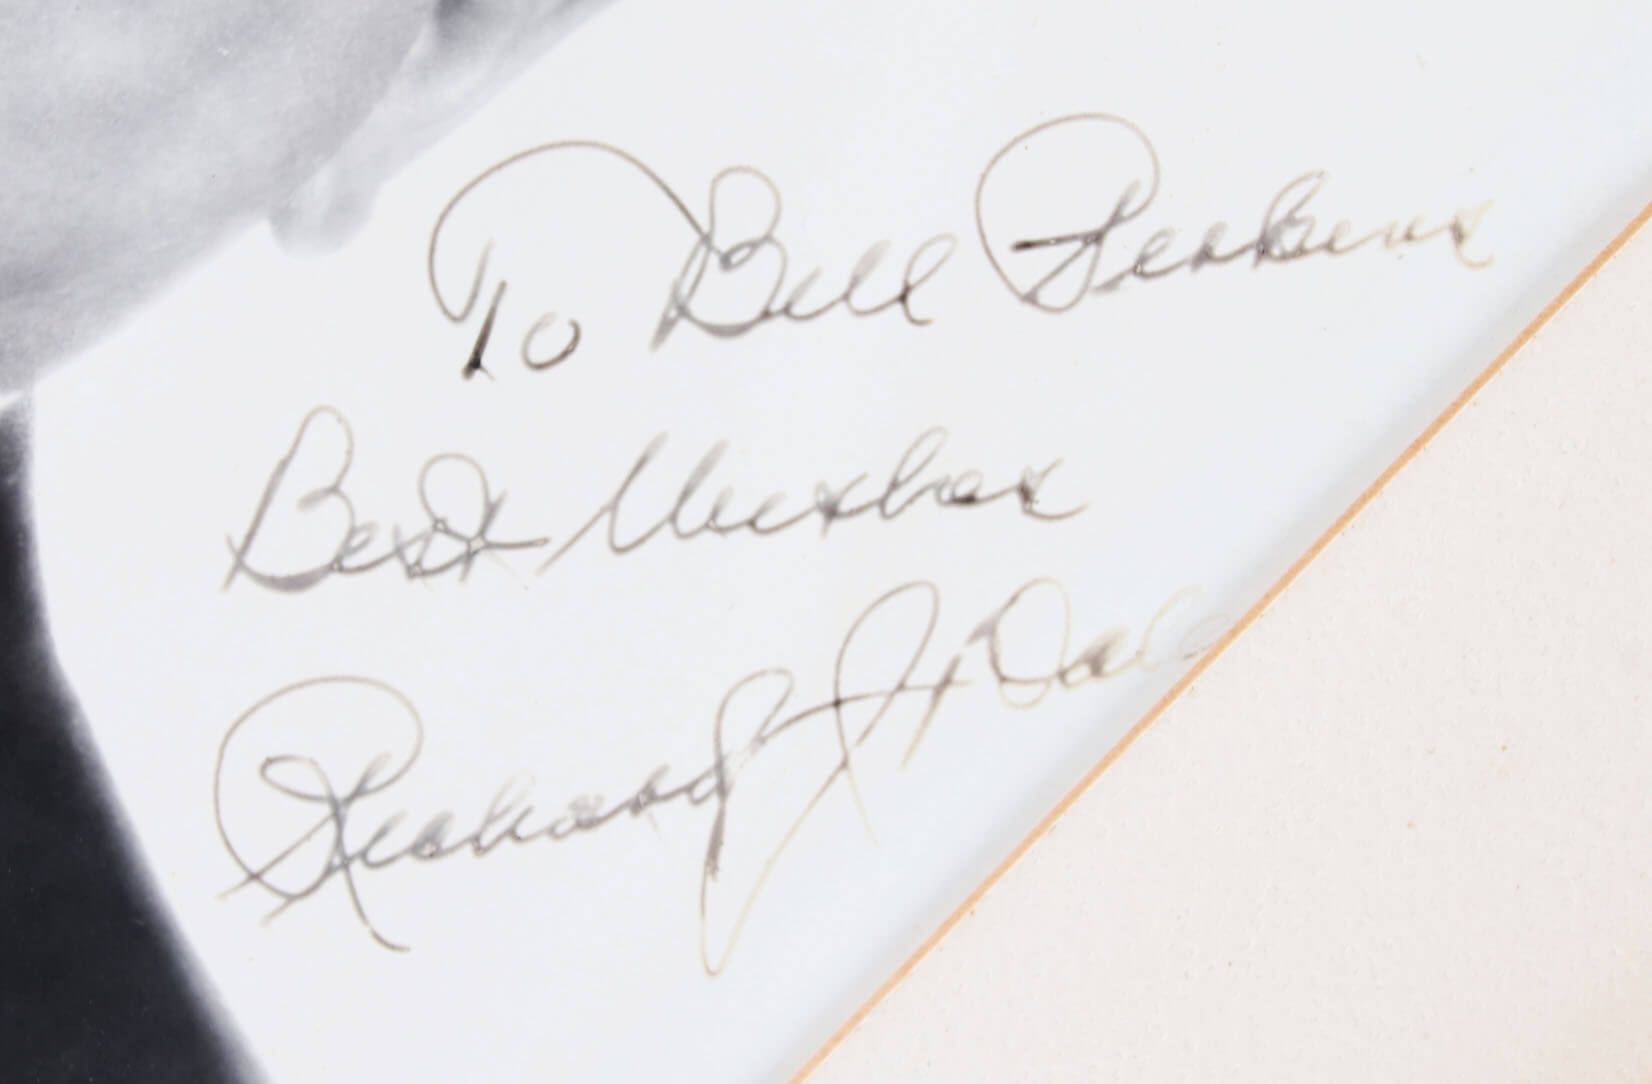 To Bill Perkins
Best Wishes
Richard J. Daley